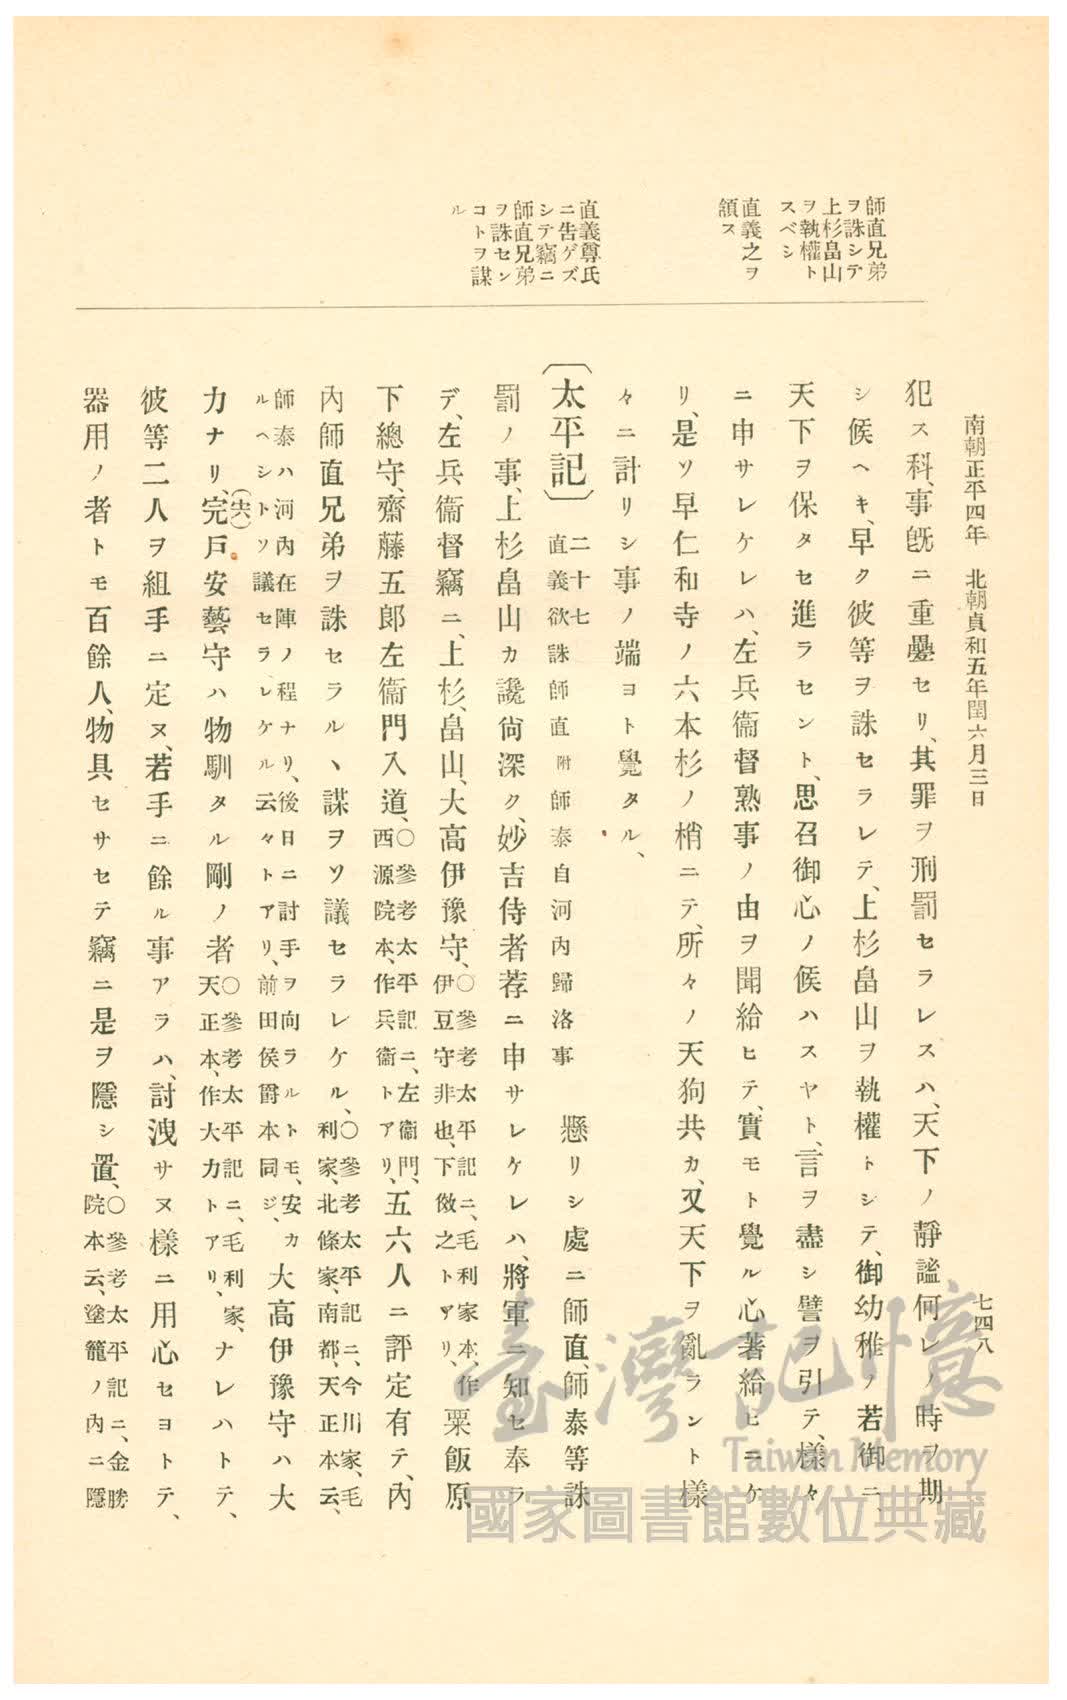 南朝正平四年　北朝貞和五年閏六月三日
七四八
師直兄弟
ヲ誅シテ
上杉畠山
ヲ執權ト
スベシ
直義之ヲ
頷ス
直義尊氏
ニ告ゲズ
シテ竊ニ
師直兄弟
ヲ誅セン
コトヲ謀
ル
犯ス科、事旣ニ重疊セリ、其罪ヲ刑罰セラレスハ、天下ノ靜謐何レノ時ヲ期
シ候ヘキ、早ク彼等ヲ誅セラレテ、上杉畠山ヲ執權トシテ、御幼稚ノ若御ニ、
天下ヲ保タセ進ラセント、思召御心ノ候ハスヤト、言ヲ盡シ譬ヲ引テ、樣々
ニ申サレケレハ、左兵衞督熟事ノ由ヲ聞給ヒテ、實モト覺ル心著給ヒニケ
リ、是ソ早仁和寺ノ六本杉ノ梢ニテ、所々ノ天狗共カ、又天下ヲ亂ラント樣
々ニ計リシ事ノ端ヨト覺タル、
〔太平記〕二十七
直義欲誅師直附師泰自河內歸洛事　懸リシ處ニ師直、師泰等誅
罰ノ事、上杉畠山カ讒尙深ク、妙吉侍者荐ニ申サレケレハ、將軍ニ知セ奉ラ
デ、左兵衞督竊ニ、上杉、畠山、大高伊豫守、〇參考太平記ニ、毛利家本、作
伊豆守非也、下倣之トアリ、粟飯原
下總守、齋藤五郎左衞門入道、〇參考太平記ニ、左衞門、
西源院本、作兵衞トアリ、五六人ニ評定有テ、內
內師直兄弟ヲ誅セラルヽ謀ヲソ議セラレケル、〇參考太平記ニ、今川家、毛
利家、北條家、南都、天正本云、
師泰ハ河內在陣ノ程ナリ、後日ニ討手ヲ向ラル
ルヘシトソ議セラレケル云々トアリ、前田侯爵本同ジ、トモ、安カ大高伊豫守ハ大
力ナリ、完(宍)戶安藝守ハ物馴タル剛ノ者〇參考太平記ニ、毛利家、
天正本、作大力トアリ、ナレハトテ、
彼等二人ヲ組手ニ定ヌ、若手ニ餘ル事アラハ、討洩サヌ樣ニ用心セヨトテ、
器用ノ者トモ百餘人、物具セサセテ竊ニ是ヲ隱シ置、〇參考太平記ニ、金勝
院本云、塗籠ノ內ニ隱
臺灣記憶
Taiwan Memory
國家圖書館數位典藏